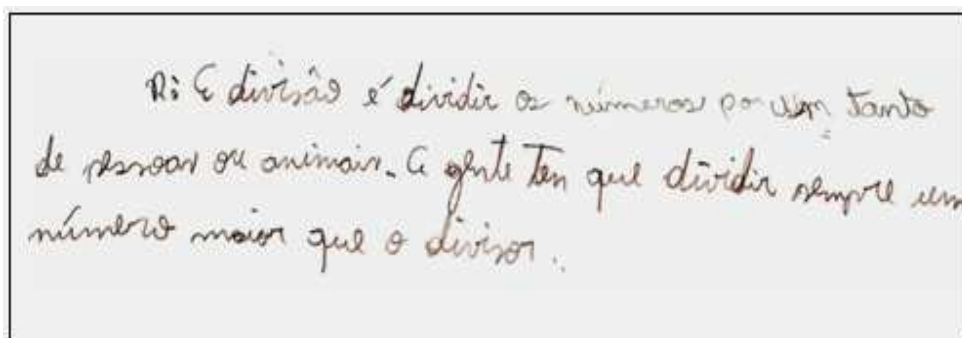 R: E divisão é dividir os números por um tanto
de pessoas ou animais. A gente ten que dividir sempre um
número maior que o divisor.